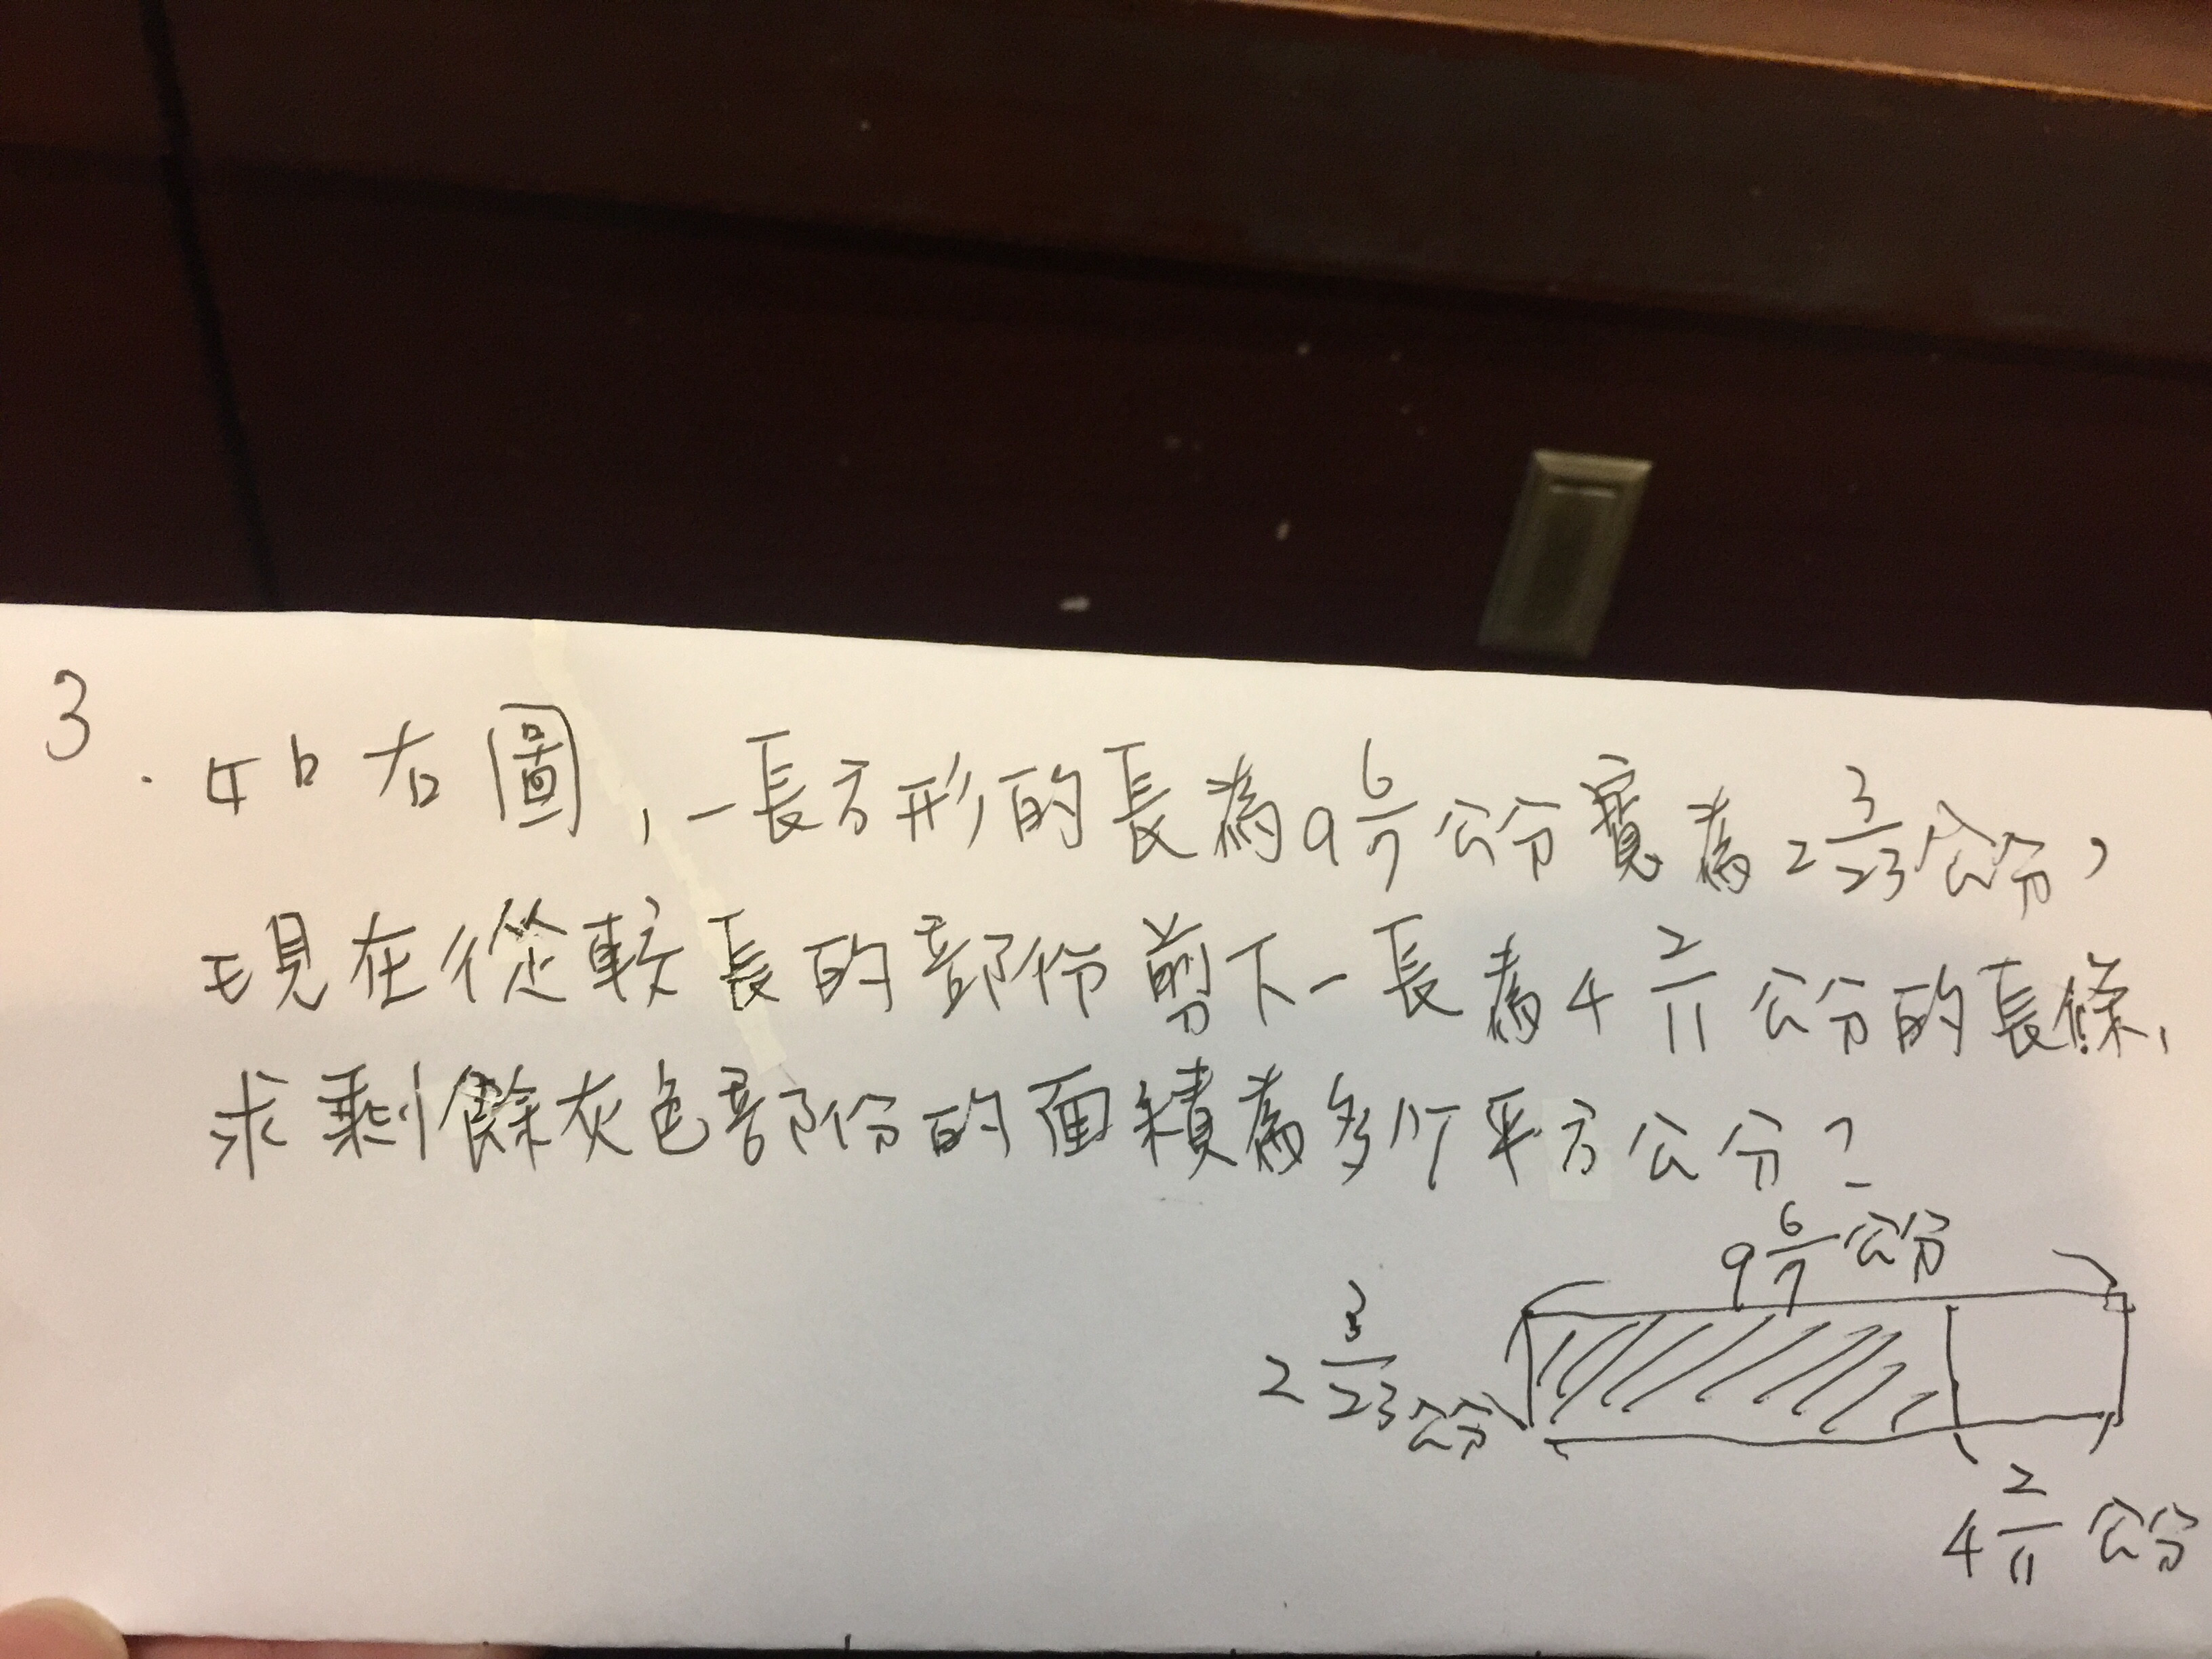 3. 如右圖,一長方形的長為9 6/7公分寬為2 3/23公分,
現在從較長的部份剪下一長為4 2/11公分的長條,
求剩餘灰色部份的面積為多少平方公分?
9 6/7公分
2 3/23公分
4 2/11公分